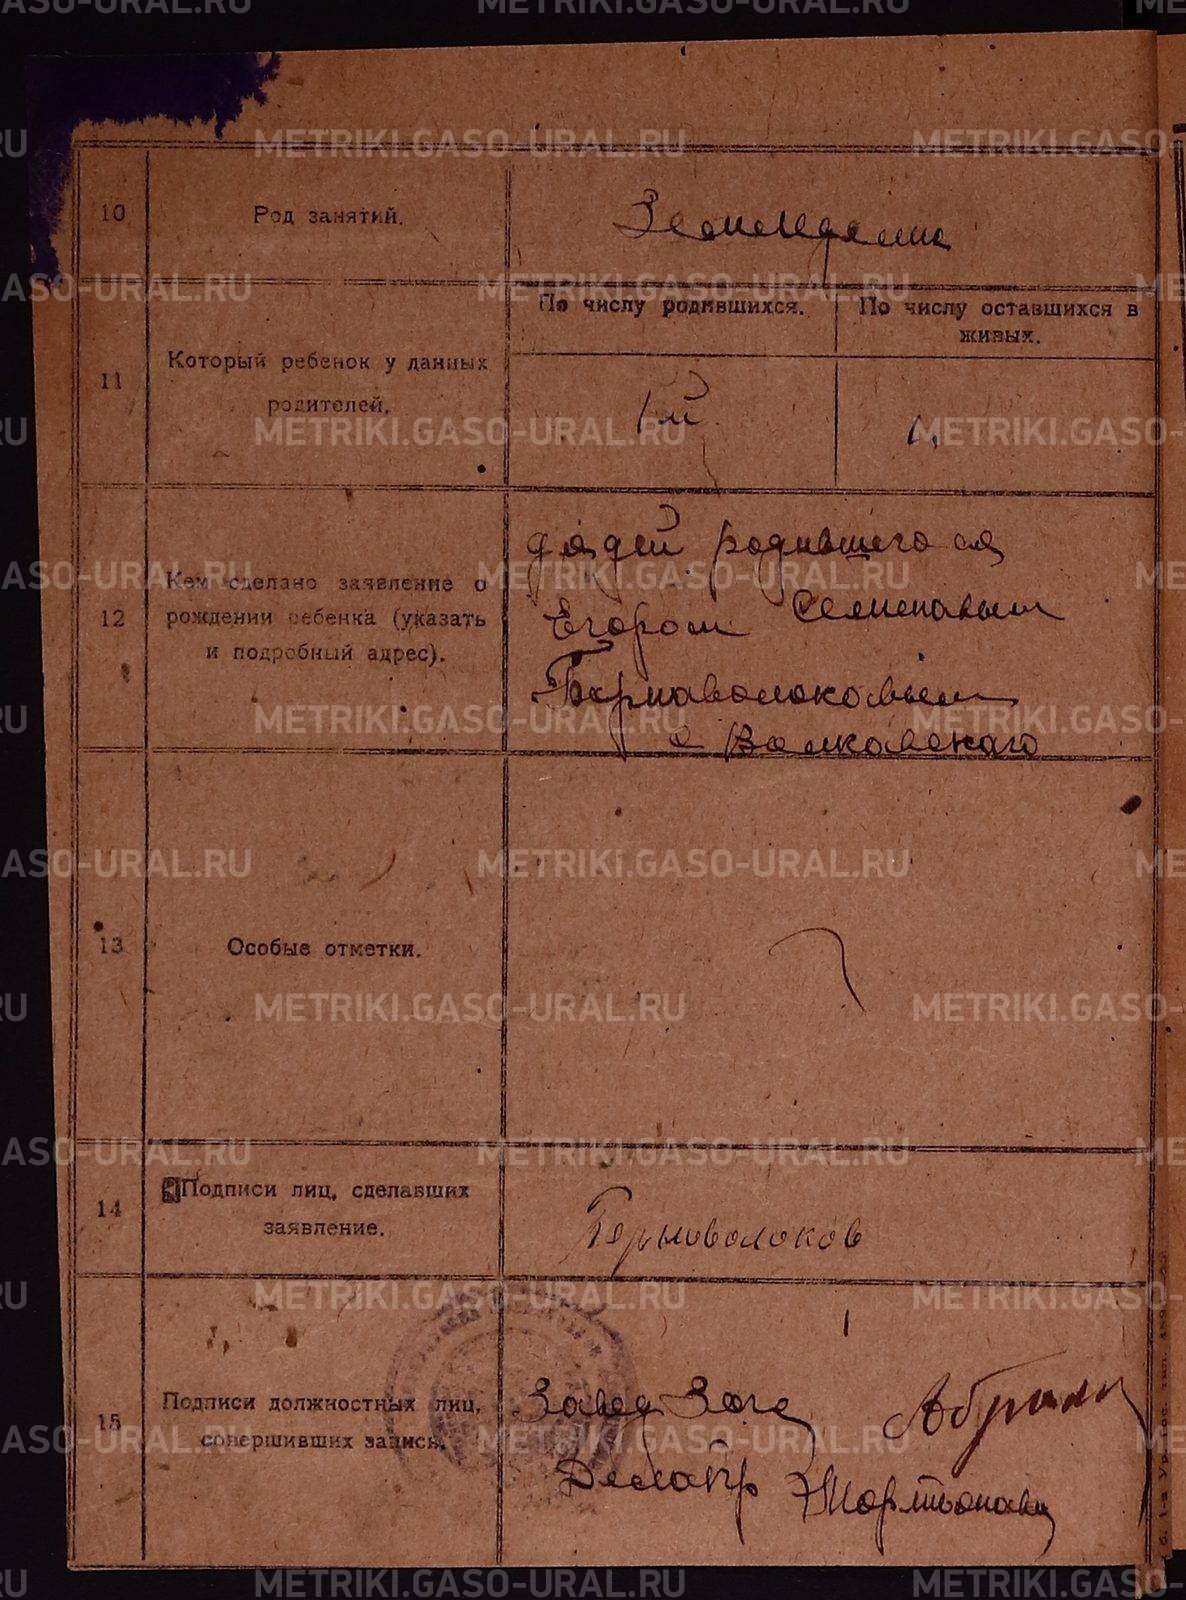 METRIKI.GASO-URAL.RU
10
Род занятий.
11
Который ребенок у данных
родителей.
По числу родившихся.
По числу оставшихся в
живых.
1й
12
Кем сделано заявление о
рождении ребенка (указать
и подробный адрес).
дядей родившегося
Егором Семеновым
с Волковского
13
Особые отметки.
14
Подписи лиц, сделавших
заявление.
15
Подписи должностных лиц,
совершивших запись.
Завед Загс